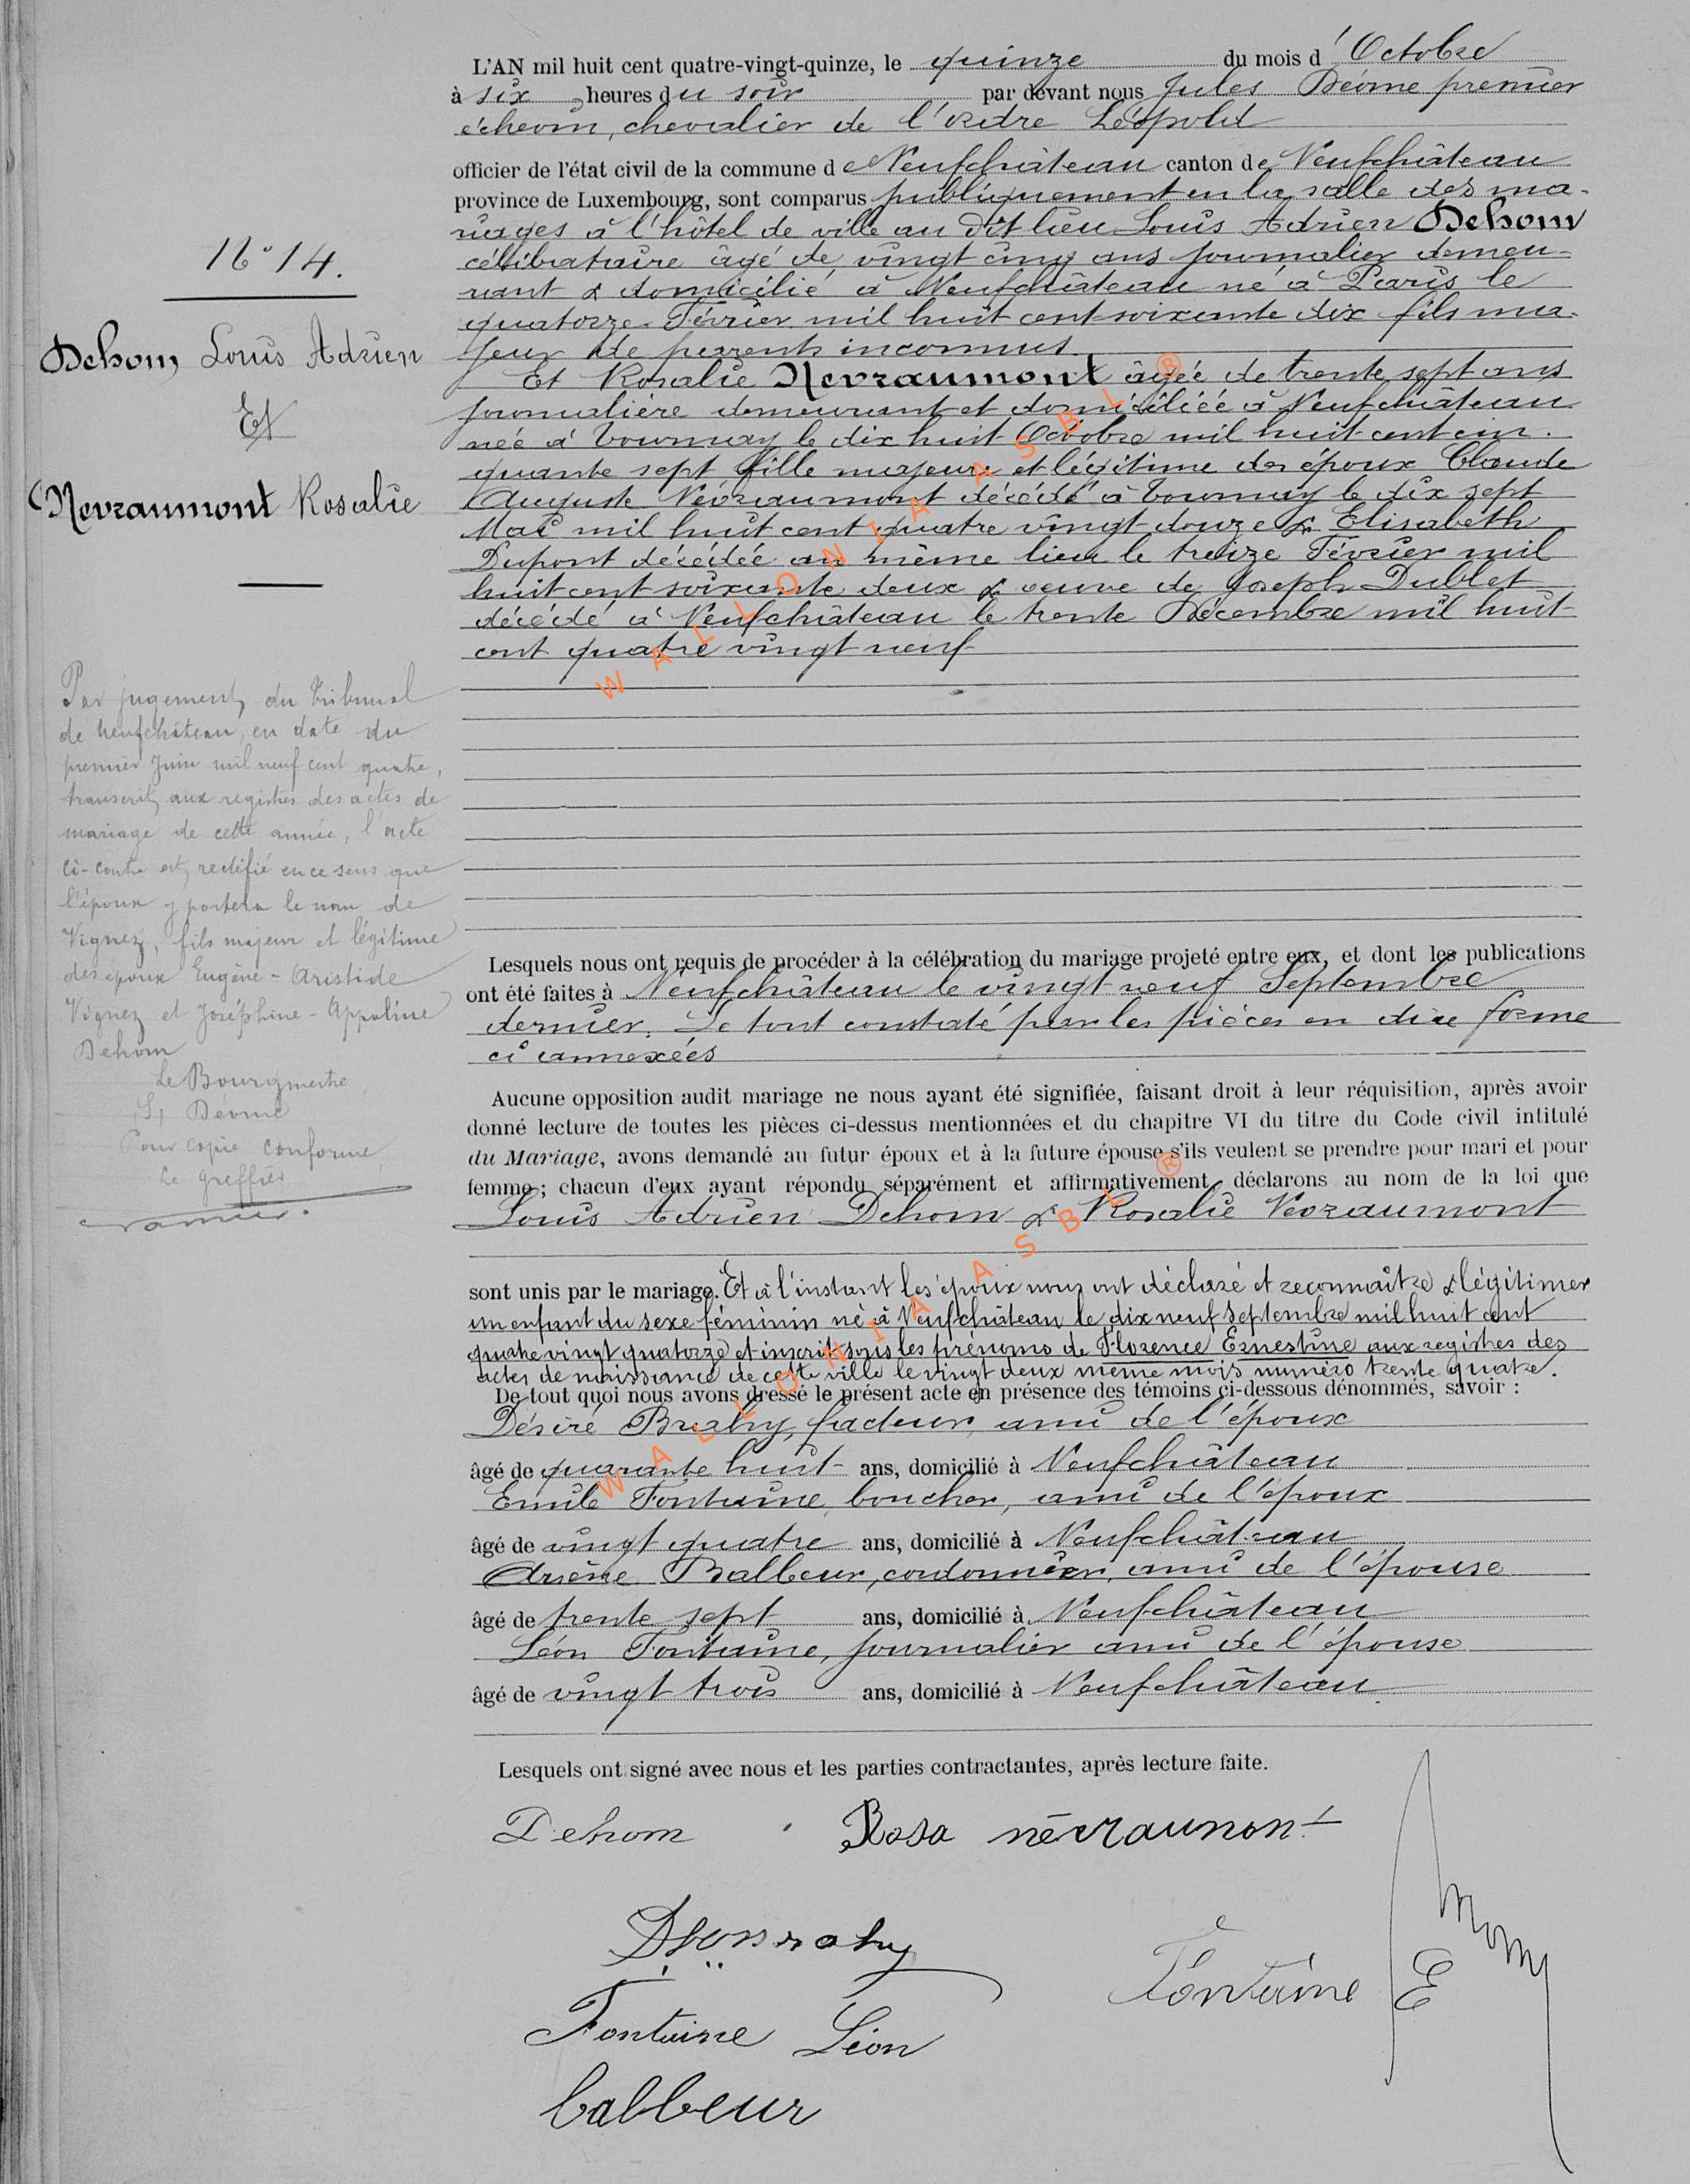 N° 14.
Dehom, Louis Adrien
Et
Nevraumont Rosalie
Par jugement, du tribunal
de Neufchâteau, en date du
premier Juin mil neuf cent quatre,
transcrit, aux registres des actes de
mariage de cette année, l'acte
ci-contre est, rectifié en ce sens que
l'époux y portera le nom de
Vignez, fils majeur et légitime
des époux Eugène-Aristide
Vignez et Joséphine-Appoline
Dehom
Le Bourgmestre,
Pour copie conforme,
Le Greffier
L'AN mil huit cent quatre-vingt-quinze, le quinze du mois d'Octobre
à six heures du soir par devant nous Jules Déome premier
échevin, chevalier de l'ordre Léopold
officier de l'état civil de la commune de Neufchâteau canton de Neufchâteau
province de Luxembourg, sont comparus publiquement en la salle des ma-
riages à l'hôtel de ville au dit lieu Louis Adrien Dehom
célibataire âgé de vingt cinq ans journalier demeu-
rant & domicilié à Neufchâteau né à Paris le
quatorze Février mil huit cent soixante dix fils ma-
jeur de parents inconnus.
Et Rosalie Nevraumont âgée de trente sept ans
journalière demeurant et domiciliée à Neufchâteau
née à Tournay le dix huit Octobre mil huit cent cin-
quante sept fille majeure et légitime des époux Claude
Auguste Névraumont décédé à Tournay le dix sept
Mai mil huit cent quatre vingt douze & Elisabeth
Dupont décédée au même lieu le treize Février mil
huit cent soixante deux & veuve de Joseph Dublet
décédé à Neufchâteau le trente Décembre mil huit
cent quatre vingt neuf
Lesquels nous ont requis de procéder à la célébration du mariage projeté entre eux, et dont les publications
ont été faites à Neufchâteau le vingt neuf Septembre
dernier. Le tout constaté par les pièces en due forme
ci annexées
Aucune opposition audit mariage ne nous ayant été signifiée, faisant droit à leur réquisition, après avoir
donné lecture de toutes les pièces ci-dessus mentionnées et du chapitre VI du titre du Code civil intitulé
du Mariage, avons demandé au futur époux et à la future épouse s'ils veulent se prendre pour mari et pour
femme ; chacun d'eux ayant répondu séparément et affirmativement, déclarons au nom de la loi que
Louis Adrien Dehom & Rosalie Nevraumont
sont unis par le mariage. Et à l'instant les époux nous ont déclaré et reconnaître & légitimer
un enfant du sexe féminin né à Neufchâteau le dix neuf Septembre mil huit cent
quatre vingt quatorze et inscrit sous les prénoms de Florence Ernestine aux registres des
actes de naissance de cette ville le vingt deux même mois numéro trente quatre.
De tout quoi nous avons dressé le présent acte en présence des témoins ci-dessous dénommés, savoir :
Désiré Brahy, facteur, ami de l'époux
âgé de quarante huit ans, domicilié à Neufchâteau
Emile Fontaine, boucher, ami de l'époux
âgé de vingt quatre ans, domicilié à Neufchâteau
Arsène Balbeur, cordonnier, ami de l'épouse
âgé de trente sept ans, domicilié à Neufchâteau
Léon Fontaine, journalier ami de l'épouse
âgé de vingt trois ans, domicilié à Neufchâteau
Lesquels ont signé avec nous et les parties contractantes, après lecture faite.
Dehom Rosa névraumont
Fontaine E
Fontaine Léon
balbeur
WALLONIA ASBL ®
WALLONIA ASBL ®